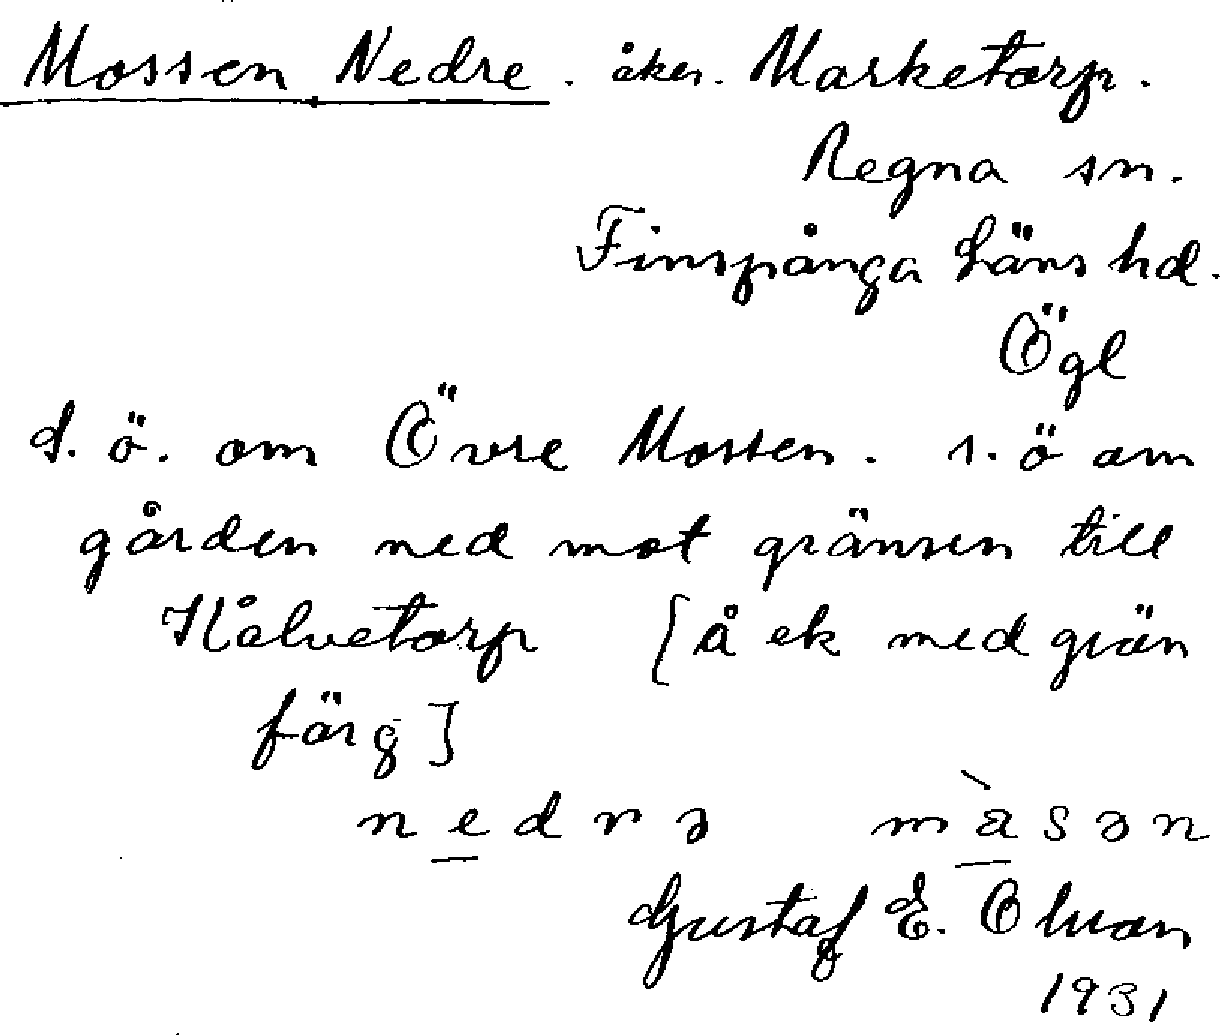 Mossen Nedre. åker. Marketorp.
Regna sn.
Finspånga läns hd.
Ögl
S. ö. om Övre Mossen. s. ö om
gården ned mot gränsen till
Hålvetorp [å ek med grön
färg]
nedrə måsən
Gustaf E.
1931